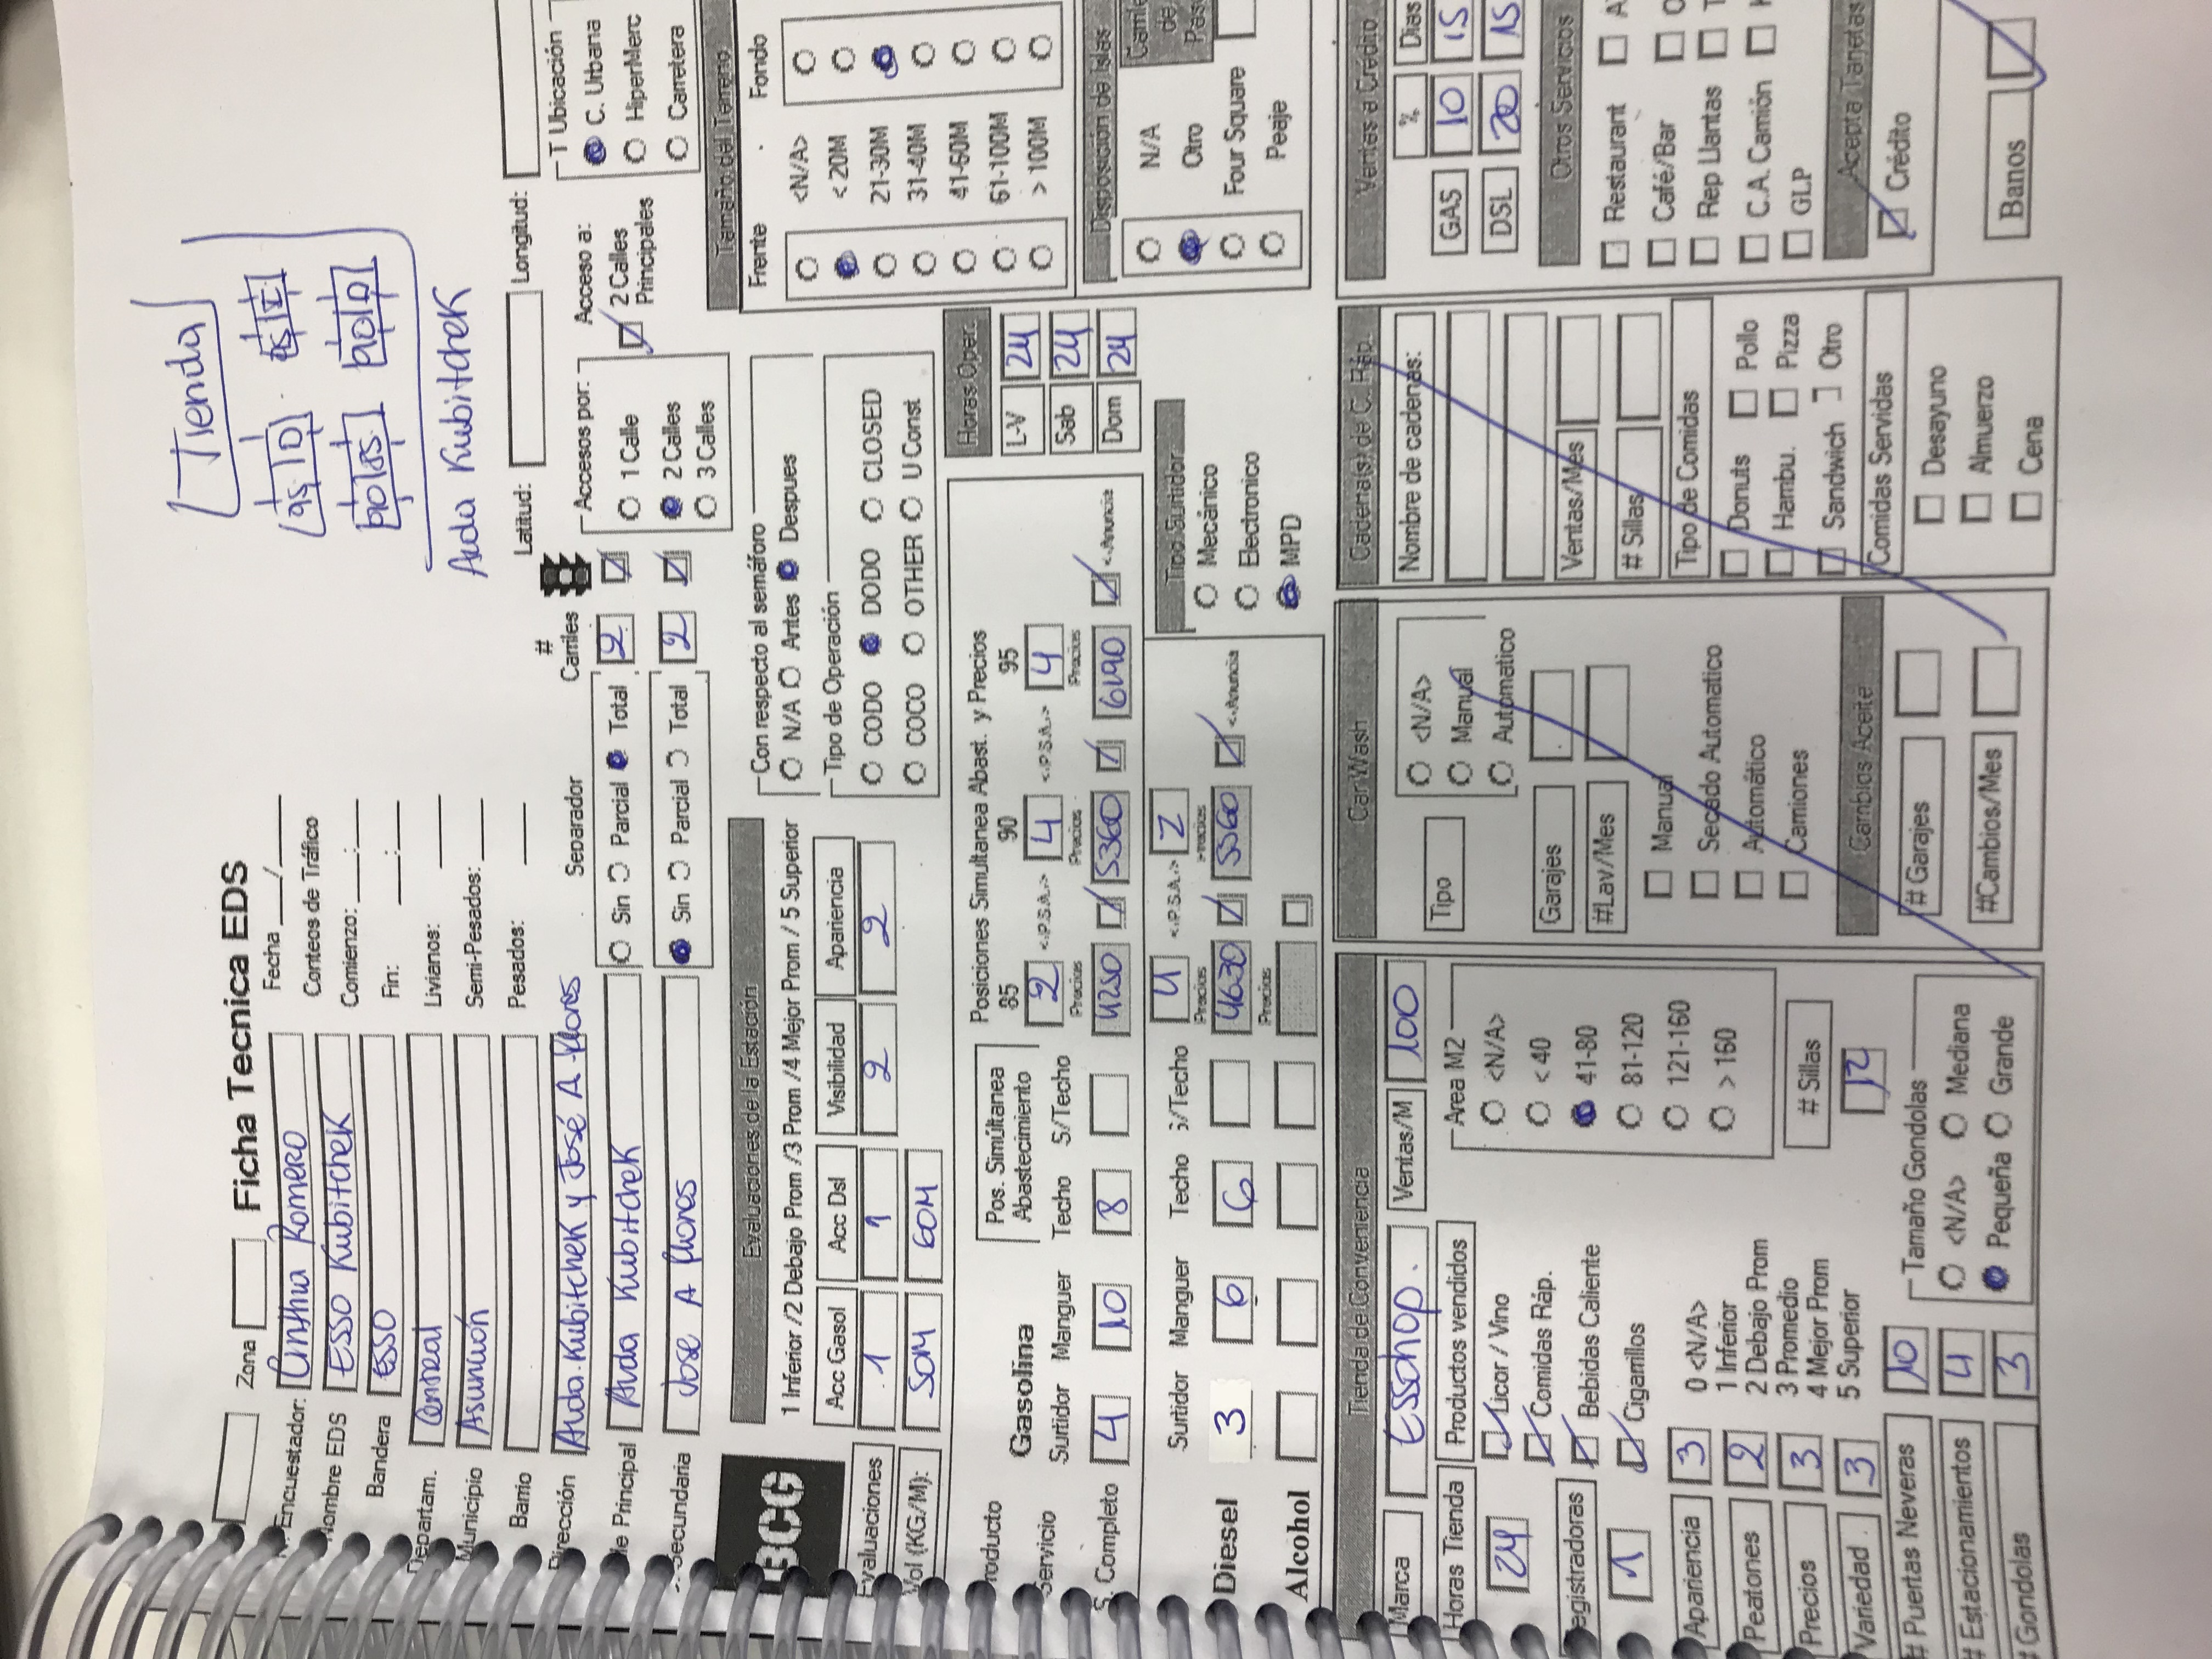 Tienda
95 D
90 85
90 D
Avda Kubitchek
Zona
Ficha Tecnica EDS
Encuestador: Cinthia Romero
Fecha ___/___
Nombre EDS Esso Kubitchek
Conteos de Tráfico
Bandera Esso
Comienzo: ___:___
Fin: ___:___
Departam. Central
Livianos:
Municipio Asunción
Semi-Pesados:
Barrio
Pesados:
Latitud:
Longitud:
Dirección Avda. Kubitchek y José A. Flores
Separador
# Carriles
Accesos por:
Acceso a:
T Ubicación
Calle Principal Avda Kubitchek
Sin Parcial Total 2
1 Calle
2 Calles
3 Calles
2 Calles Principales
C. Urbana
HiperMerc
Carretera
Secundaria Jose A Flores
Sin Parcial Total 2
BCG
Evaluaciones de la Estación
1 Inferior /2 Debajo Prom /3 Prom /4 Mejor Prom / 5 Superior
Acc Gasol Acc Dsl Visibilidad Apariencia
Evaluaciones 1 1 2 2
Vol (KG/M): 50M 60M
Con respecto al semáforo
N/A Antes Despues
Tipo de Operación
CODO DODO CLOSED
COCO OTHER U Const
Tamaño del Terreno
Frente Fondo
<N/A>
< 20M
21-30M
31-40M
41-60M
61-100M
> 100M
Producto
Servicio
Gasolina
Pos. Simúltanea Abastecimiento
Posiciones Simultanea Abast. y Precios
85 90 95
2 <.P.S.A..> 4 <.P.S.A..> 4
Surtidor Manguer Techo S/Techo
Precios Precios Precios
S. Completo 4 10 8
4250 5360 6490 <.Anuncia
Surtidor Manguer Techo S/Techo
4 <.P.S.A..> 2
Precios Precios
Diesel 3 6 6
4630 5560 <.Anuncia
Precios
Alcohol
Horas Oper.
L-V 24
Sab 24
Dom 24
Tipo Surtidor
Mecánico
Electronico
MPD
Disposición de Islas
N/A
Otro
Four Square
Peaje
Tienda de Conveniencia
Marca Esshop.
Ventas/M 100
Horas Tienda 24
Productos vendidos
Licor / Vino
Comidas Ráp.
Bebidas Caliente
Cigarrillos
Registradoras 1
Area M2
<N/A>
< 40
41-80
81-120
121-160
> 160
Apariencia 3
Peatones 2
Precios 3
Variedad 3
0 <N/A>
1 Inferior
2 Debajo Prom
3 Promedio
4 Mejor Prom
5 Superior
# Sillas
12
# Puertas Neveras 10
# Estacionamientos 4
# Gondolas 3
Tamaño Gondolas
<N/A> Mediana
Pequeña Grande
Car Wash
Tipo
<N/A>
Manual
Automatico
Garajes
#Lav/Mes
Manual
Secado Automatico
Automático
Camiones
Cambios Aceite
# Garajes
#Cambios/Mes
Cadena(s) de C. Ráp.
Nombre de cadenas:
Ventas/Mes
# Sillas
Tipo de Comidas
Donuts Pollo
Hambu. Pizza
Sandwich Otro
Comidas Servidas
Desayuno
Almuerzo
Cena
Ventas a Crédito
% Dias
GAS 10 15
DSL 20 15
Otros Servicios
Restaurant
Café/Bar
Rep Llantas
C.A. Camión
GLP
Acepta Tarjetas
Crédito
Banos